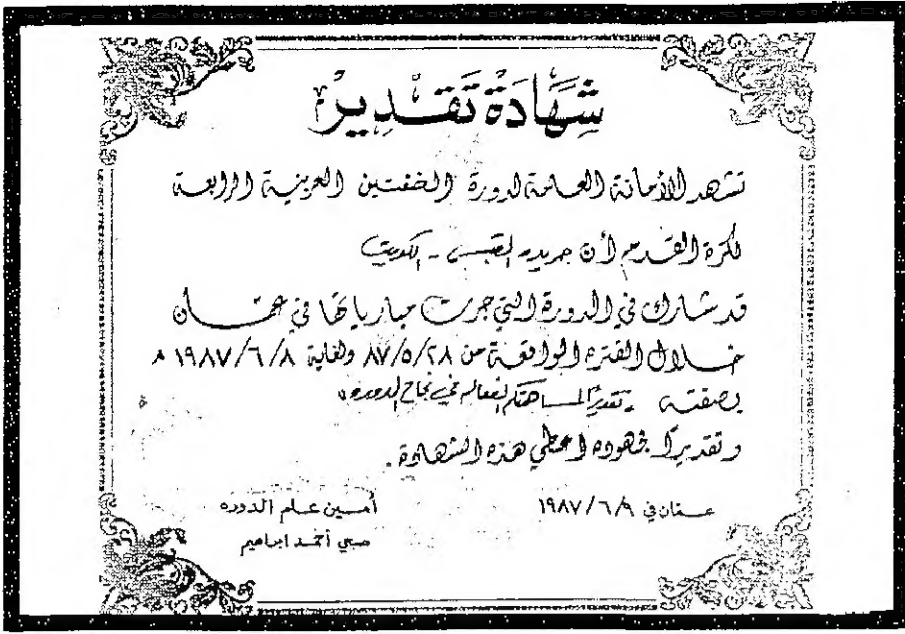 شَهَادَة تَقْدِير
تشهد الأمانة العامة لدورة الخفتين العربية الرابعة
لكرة القدم أن جريدة القبس - الكويت
قد شارك في الدورة التي جرت مبارياتها في عمان
خلال الفترة الواقعة من ٨٧/٥/٢٨ ولغاية ١٩٨٧/٦/٨ م
بصفته تقديراً لمساهمتكم الفعالة في نجاح الدورة
وتقديراً لجهوده اعطي هذه الشهادة .
عمان في ١٩٨٧/٦/٩
أمين عام الدورة
أحمد ابراهيم